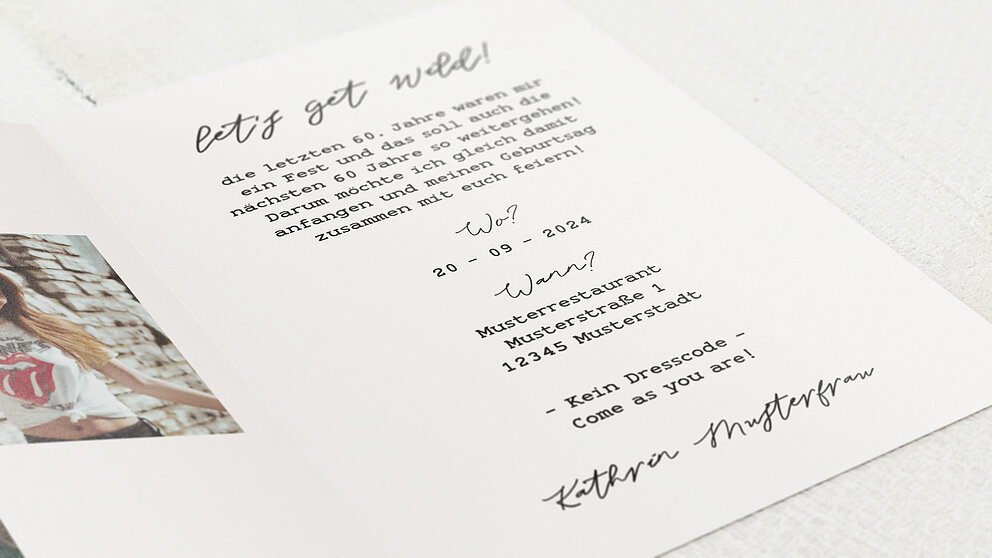 let's get wild!
die letzten 60. Jahre waren mir
ein Fest und das soll auch die
nächsten 60 Jahre so weitergehen!
Darum möchte ich gleich damit
anfangen und meinen Geburtsag
zusammen mit euch feiern!
Wo?
20 - 09 - 2024
Wann?
Musterrestaurant
Musterstraße 1
12345 Musterstadt
- Kein Dresscode -
Come as you are!
Kathrin Musterfrau